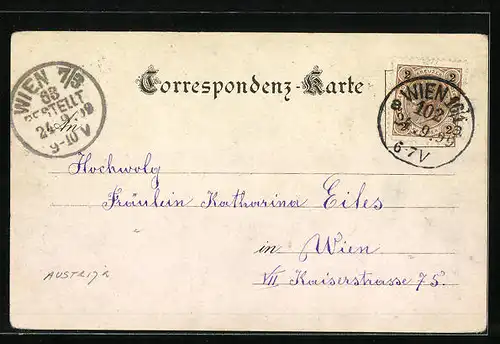 Correspondenz-Karte
WIEN 7/3
88
BESTELLT
24.9.99
9-10V
2 2
WIEN
102
6-7V
An
Hochwolg
Fräulein Katharina Eiles
in Wien
VII Kaiserstrasse 75.
AUSTRIJA